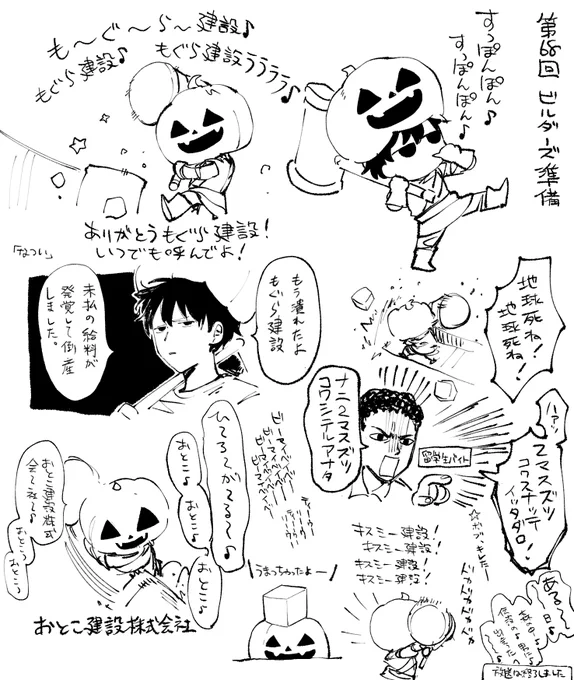 第68回 ビルダーズ準備
すっぽんぽん♪
すっぽんぽん♪
も〜ぐ〜ら〜建設♪
もぐら建設♪
もぐら建設ララララ♪
ありがとうもぐら建設！
いつでも呼んでよ！
もう潰れたよ
もぐら建設
未払の給料が
発覚して倒産
しました。
地球死ね！
地球死ね！
ナニ2マスズツ
コワシテルアナタ
留学生バイト
2マスズツ
コワスナッテ
イッタダロ！
ひてろてがてる〜♪
おとこ♪
おとこ♪
おとこ♪
おとこ建設株式
会て社て♪
おとこ
おとこ
おとこ建設株式会社
ビーマイベイベー
ビーマイベイベー
ビーマイベイベー
☆ボブ、キレたー
キスミー建設！
キスミー建設！
キスミー建設！
キスミー建設！
ドカドカドカドカ
うまっちゃったよー
ある〜日♪
放送は終了しました